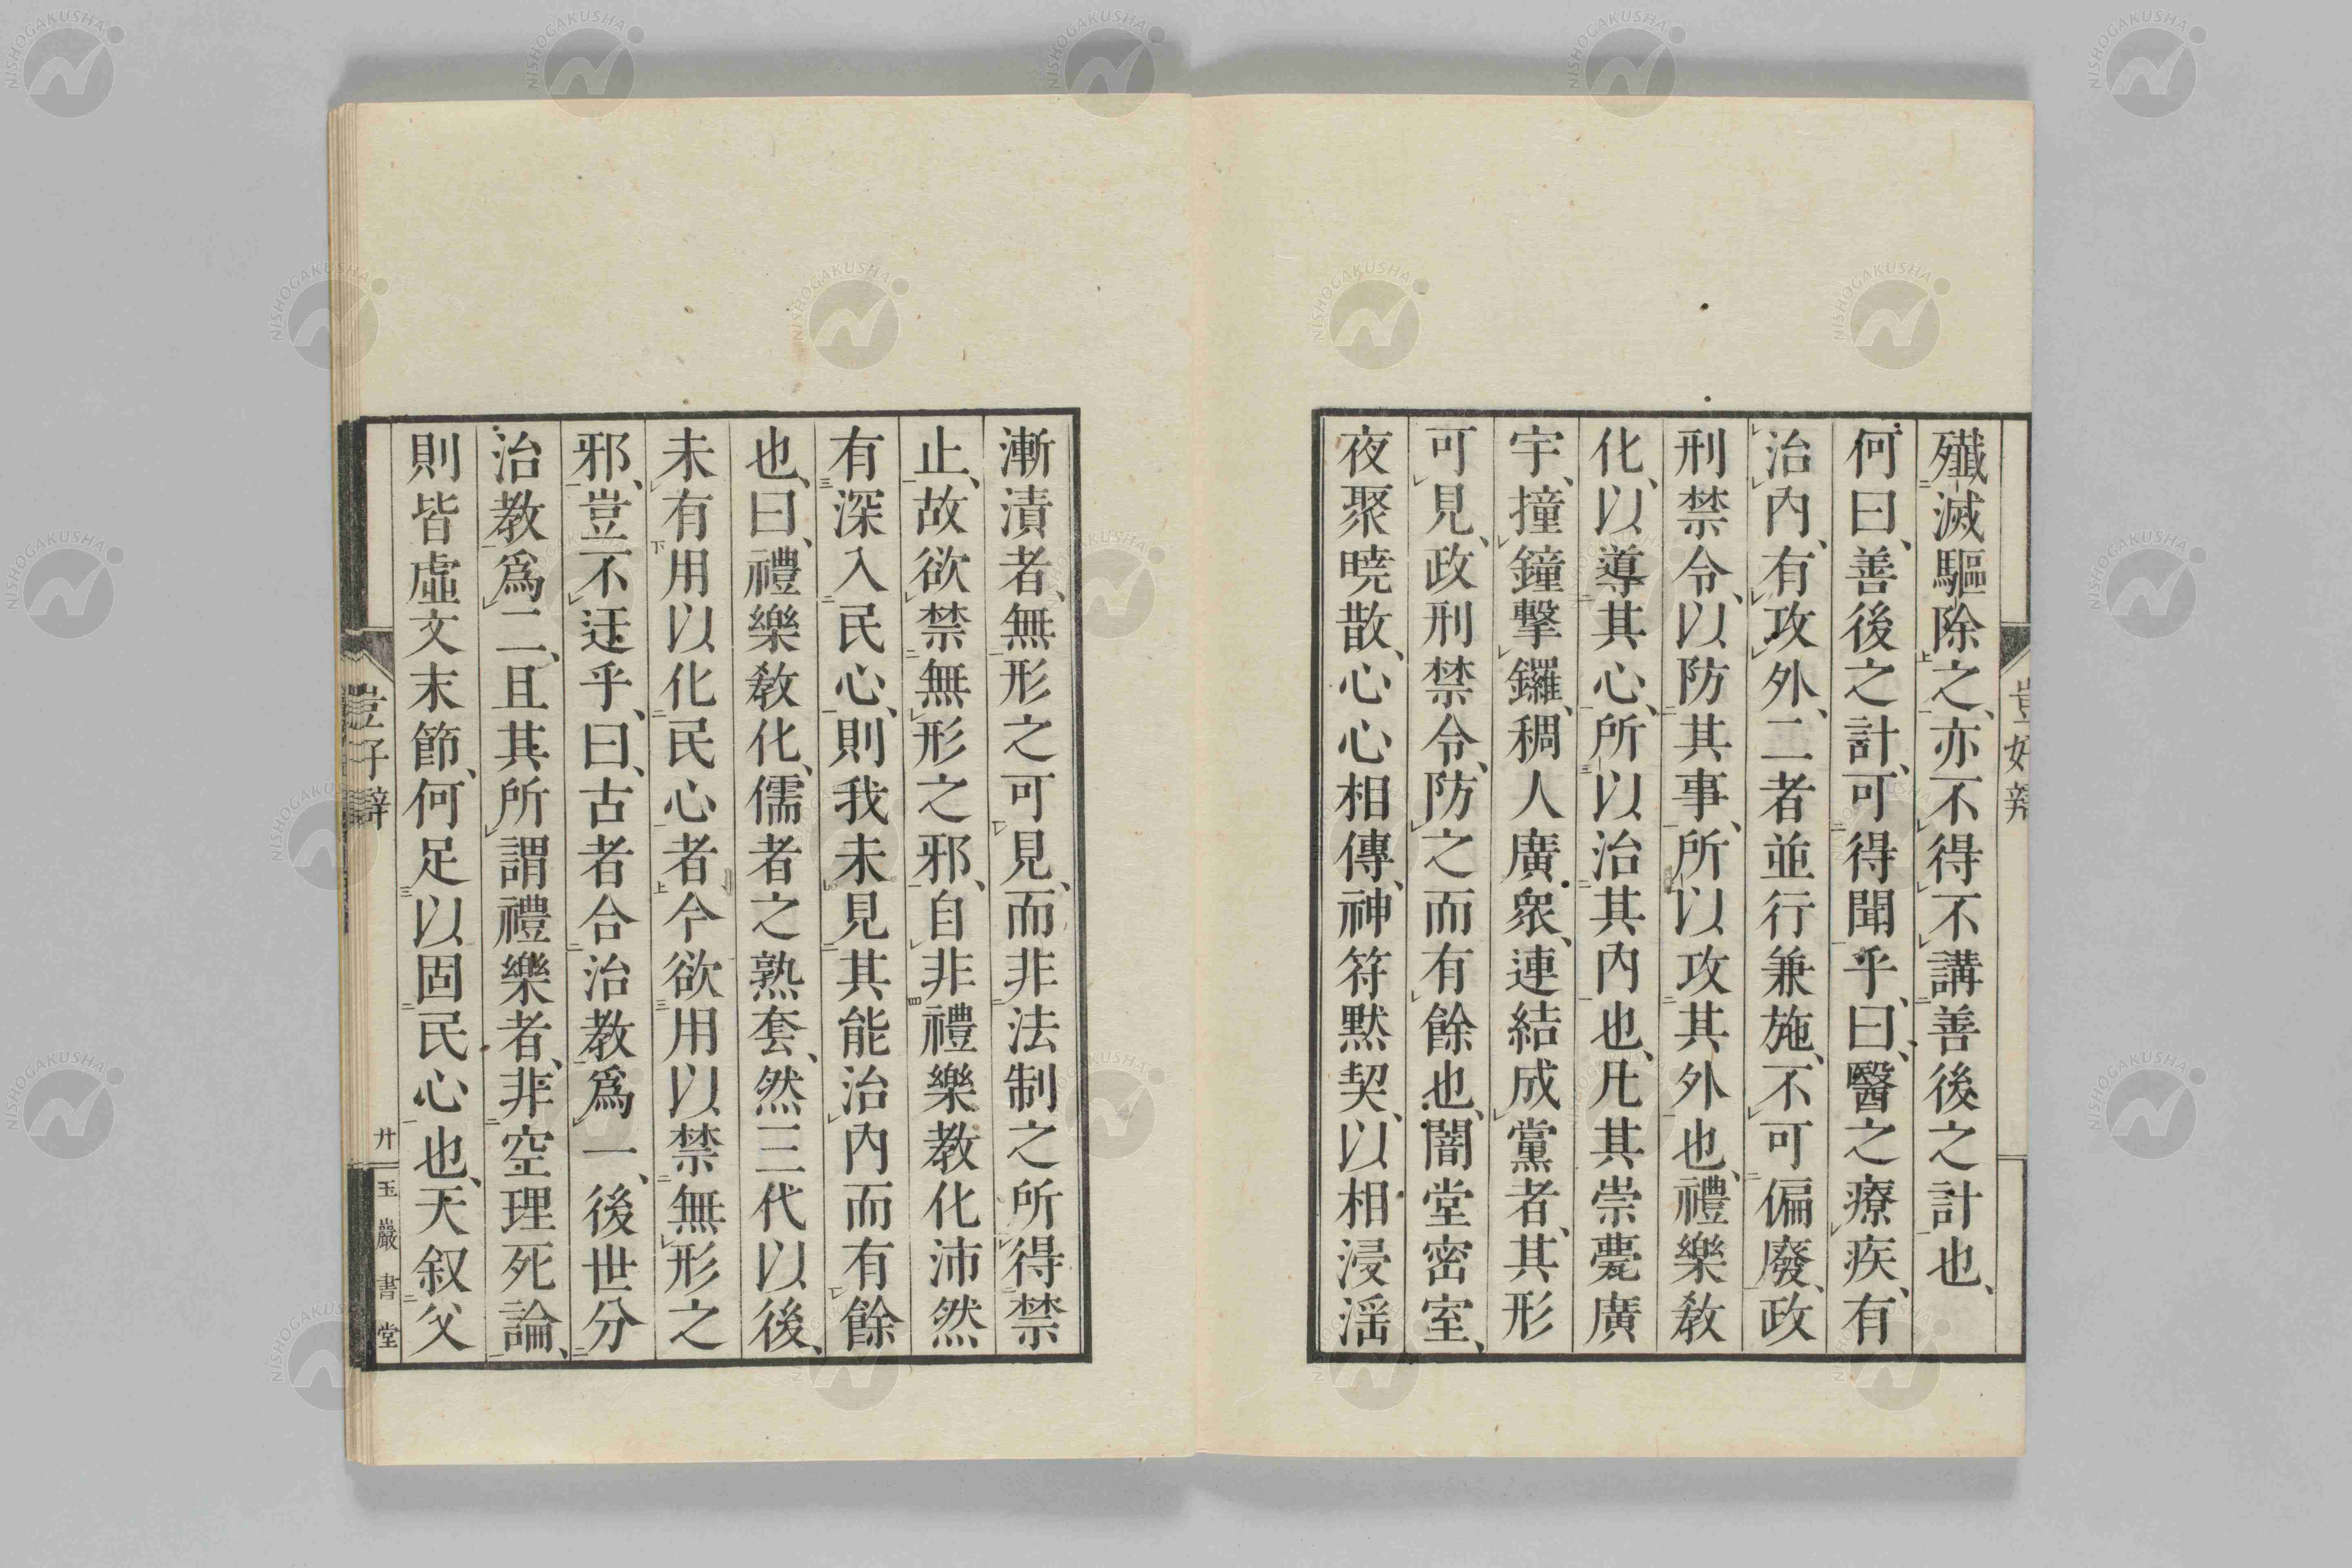 殱滅驅除之、亦不得不講善後之計也、
何曰、善後之計、可得聞乎、曰、醫之療疾、有
治內、有攻外、二者並行兼施、不可偏廢、政
刑禁令、以防其事、所以攻其外也、禮樂敎
化、以導其心、所以治其內也、凡其崇甍廣
宇、撞鐘擊鑼、稠人廣衆、連結成黨者、其形
可見、政刑禁令、防之而有餘也、闇堂密室、
夜聚曉散、心心相傳、神符默契、以相浸淫
漸漬者、無形之可見、而非法制之所得禁
止、故欲禁無形之邪、自非禮樂教化沛然
有深入民心、則我未見其能治內而有餘
也、曰、禮樂敎化、儒者之熟套、然三代以後、
未有用以化民心者、今欲用以禁無形之
邪、豈不迂乎、曰、古者合治教爲一、後世分
治教爲二、且其所謂禮樂者、非空理死論、
則皆虛文末節、何足以固民心也、天叙父
豈好辯
廾
玉巖書堂
NISHOGAKUSHA